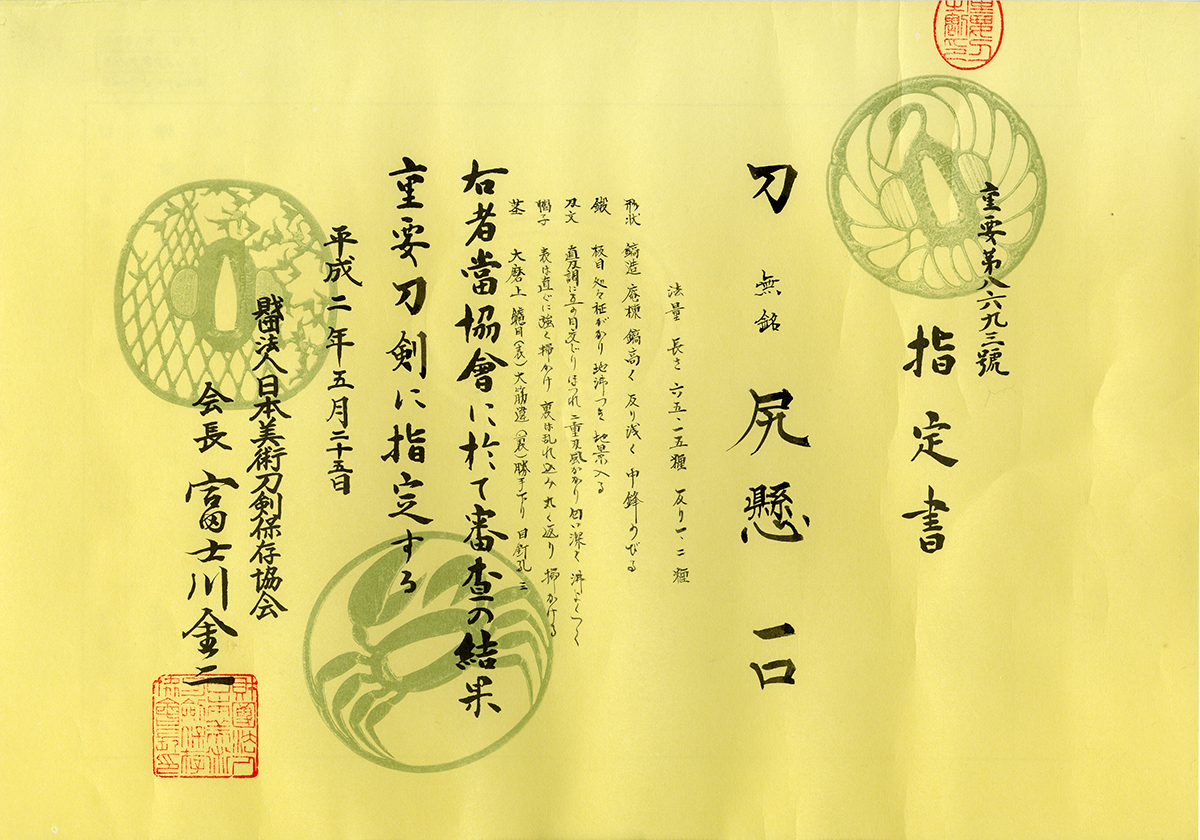 重要第八六九三號
指定書
刀 無銘 尻懸 一口
法量 長さ 六五・一五糎 反り 一・二糎
形状 鎬造 庵棟 鎬高く 反り浅く 中鋒のびる
鍛 板目 処々柾がかり 地沸つき 地景入る
刃文 直刃調に互の目交じり ほつれ 二重刃風かかり 匂い深く 沸よくつく
帽子 表は直ぐに強く掃かけ 裏は乱れ込み丸く返り 掃かける
茎 大磨上 鑢目(表)大筋違(裏)勝手下り 目釘孔三
右者當協會に於て審査の結果
重要刀剣に指定する
平成二年五月二十五日
財団法人日本美術刀剣保存協会
会長 富士川金二